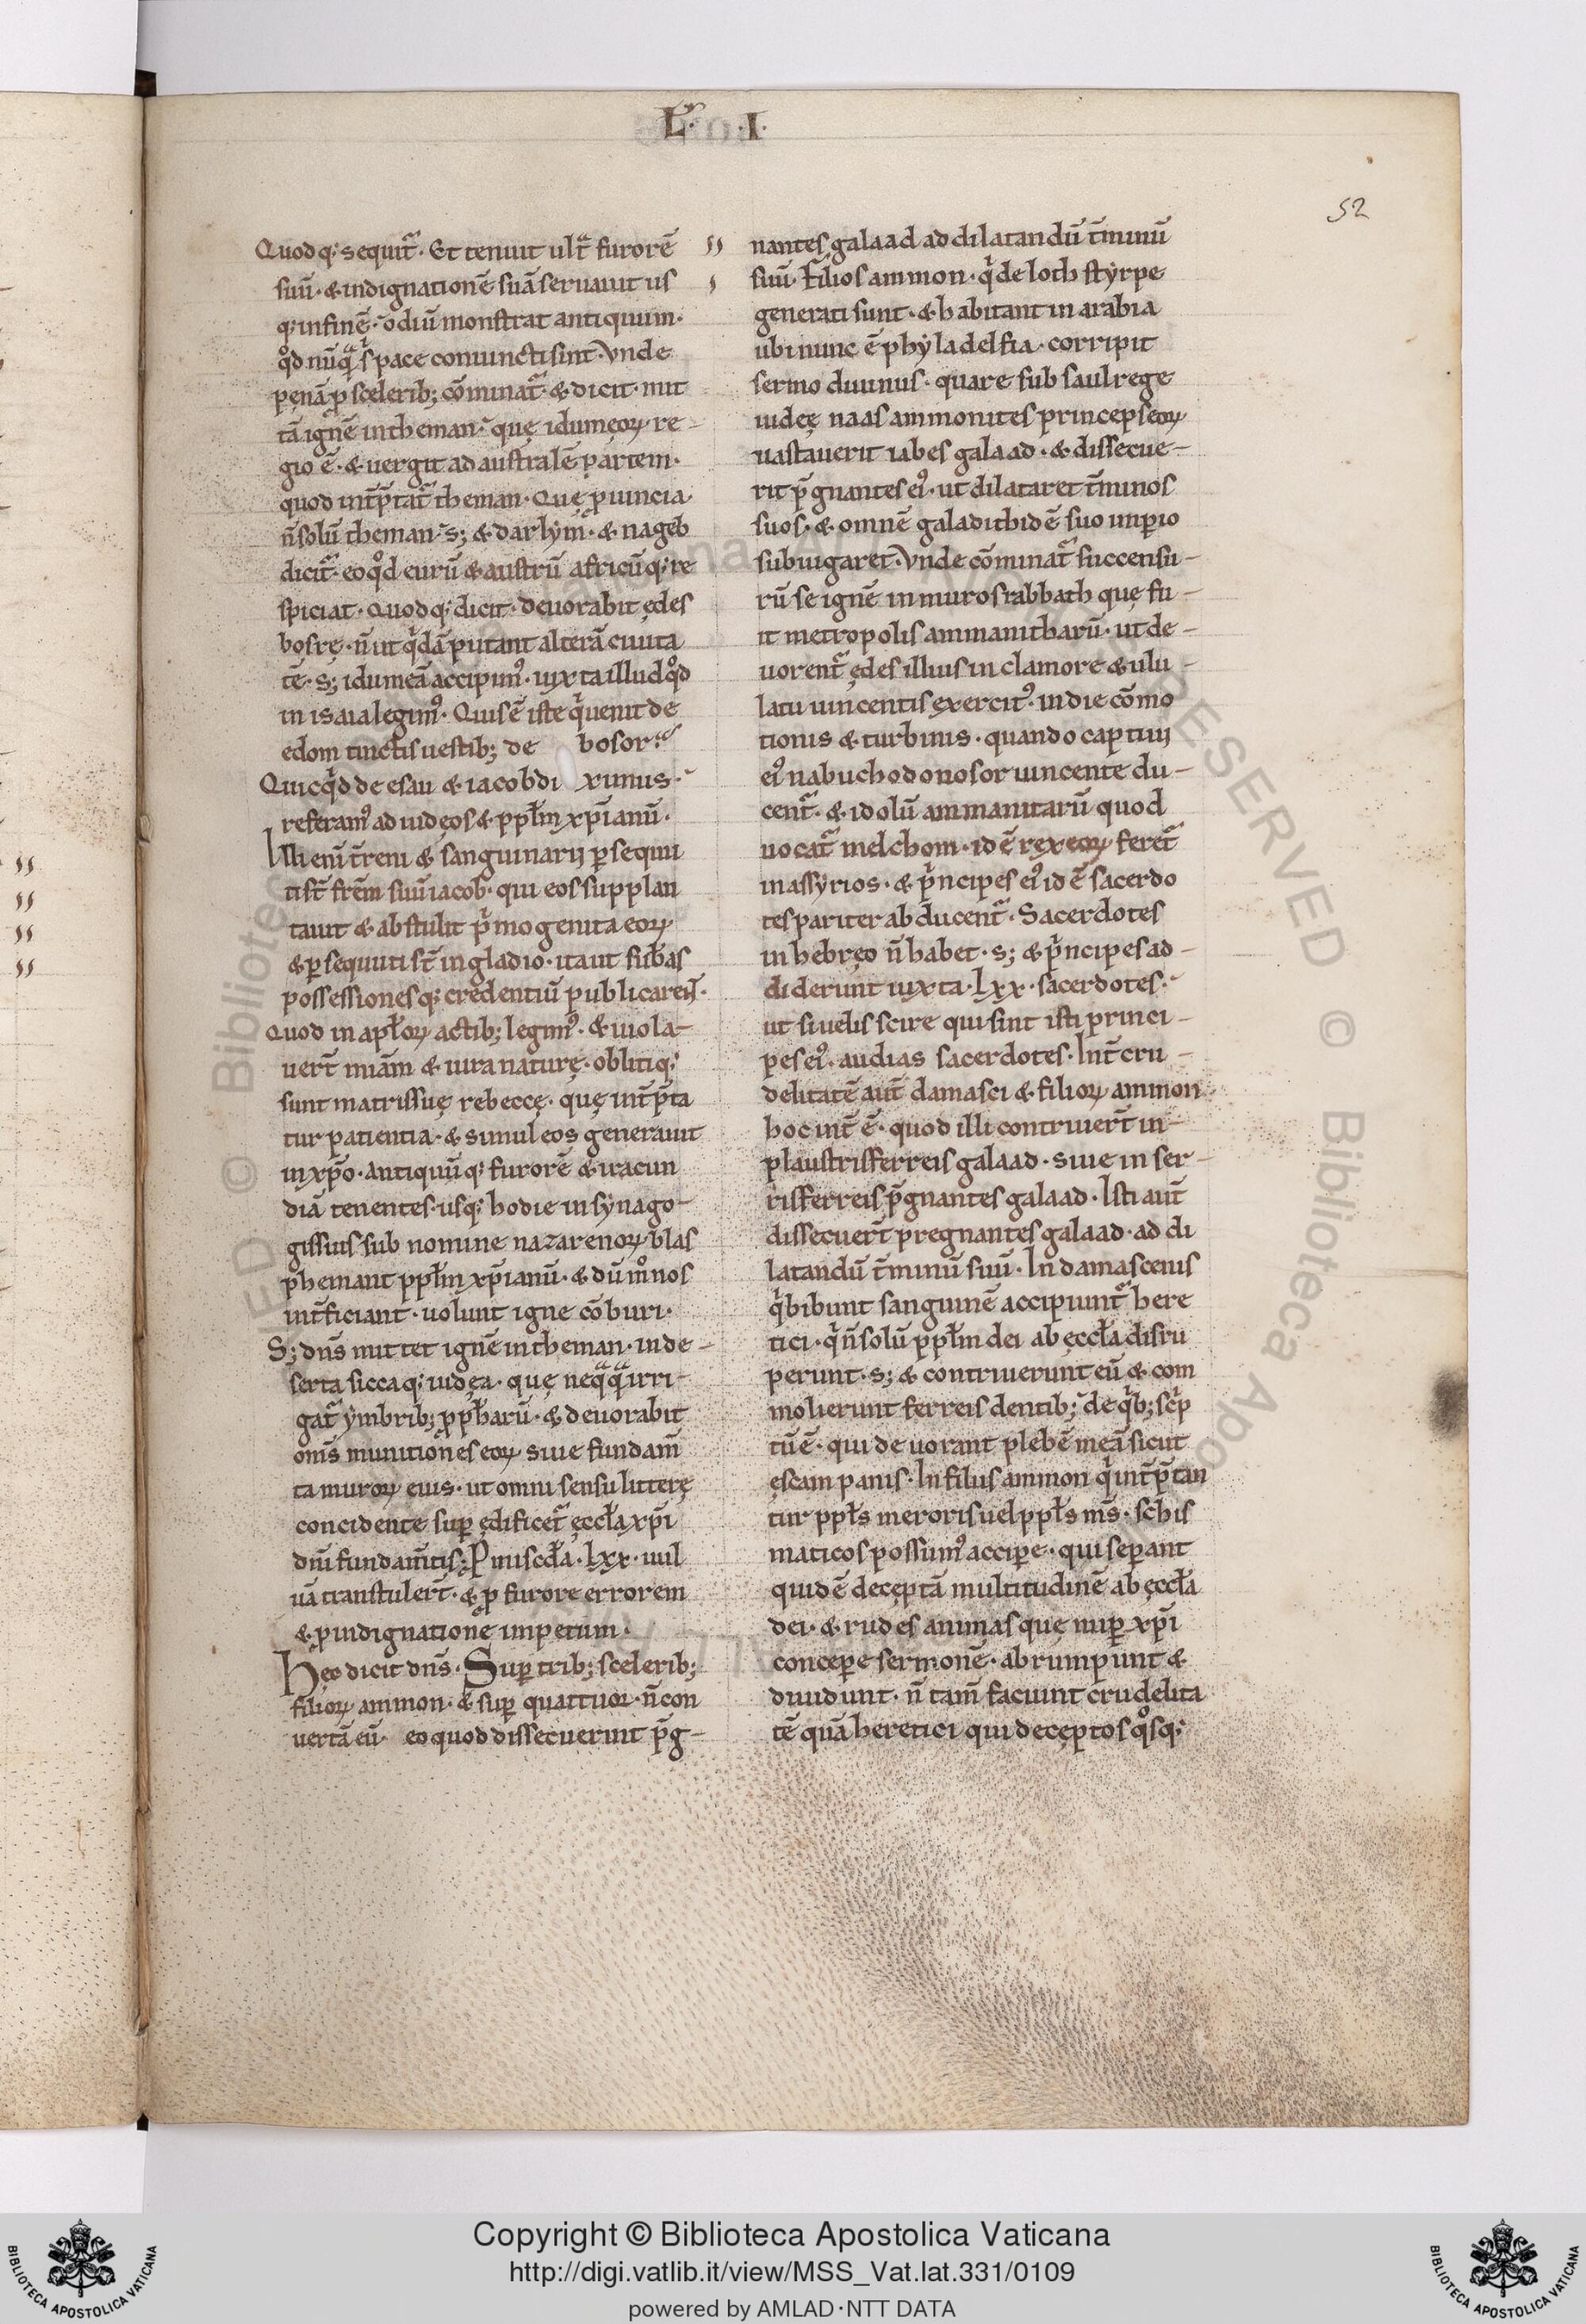 L. .I.
52
Quod q; sequit᷑. Et tenuit ult᷑ furorē
suū. & indignationē suā seruauit us
q; in finē. odiū monstrat antiquum.
qd̊ nūqᷓ s' pace coniuncti sint. Vnde
penā ꝓ scelerib; cōminat᷑. & dicit. mit
tā ignē in theman. quę idumęoꝝ re-
gio ē. & uergit ad australē partem.
quod int̄p̄tat᷑ theman. Quę ꝓuincia.
n̄ solū theman. s; & darlym̄. & nageb
dicit᷑. eo qd̊ eurū & austrū africūq; re
spiciat. Quodq; dicit. deuorabit ędes
bosrę. n̄ ut qͥdā putant alterā ciuita
tē. s; idumeā accipim᷒. iuxta illud qd̊
in isaia legim᷒. Quis ē iste qͥ uenit de
edom tinctis uestib; de bosor.
Quicqͥd de esau & iacob di ximus.
referam᷒ ad iudęos & ppl̄m xp̄ianū.
Illi enī t̄reni & sanguinarij ꝑsequu
ti st̄ fr̄em suū iacob. qui eos supplan
tauit & abstulit pͥmogenita eoꝝ.
& ꝑsequuti st̄ in gladio. ita ut subas
possessionesq; credentiū publicarent.
Quod in apl̄oꝝ actib; legim᷒. & uiola-
uert̄ mīam & iura naturę. obliti q;
sunt matris suę rebeccę. quę int̄p̄ta
tur patientia. & simul eos generauit
in xp̄o. antiquūq; furorē & iracun
diā tenentes. usq; hodie in synago-
gis suis sub nomine nazarenoꝝ blas
phemant ppl̄m xp̄ianū. & dū mͦ nos
int̄ficiant. uolunt igne cōburi.
S; dn̄s mittet ignē in theman. in de-
serta siccaq; iudęa. quę neqᷓqᷓ irri-
gat᷑ ymbrib; pp̄harū. & deuorabit
om̄s munitiones eoꝝ siue fundam̄
ta muroꝝ eius. ut omni sensu litterę
concidente suꝑ ędificet᷑ ęccl̄a xp̄i
dn̄i fundam̄tis; P misc̄da. Lxx. uul
uā transtulert̄. & ꝓ furore errorem
& ꝓ indignatione impetum.
Hęc dicit dn̄s. Suꝑ trib; scelerib;
filioꝝ ammon. & suꝑ quattuor. n̄ con
uertā eū. eo quod dissecuerint p̄g-
nantes galaad ad dilatandū t̄minū
suū. Filios ammon. qͥ de loth styrpe
generati sunt. & habitant in arabia
ubi nunc ē phyladelfia. corripit
sermo diuinus. quare sub saul rege
iudeę naas ammonites princeps eoꝝ
uastauerit iabes galaad. & dissecue-
rit p̄gnantes ei᷒. ut dilataret t̄minos
suos. & omnē galadithidē suo imꝑio
subiugaret. Vnde cōminat᷑ succensu-
rū se ignē in muros rabbath quę fu-
it metropolis ammanitharū. ut de-
uorent᷑ ędes illius in clamore & ulu-
latu uincentis exercit᷒. in die cōmo
tionis & turbinis. quando captiui
ei᷒ nabuchodonosor uincente du-
cent᷑. & idolū ammanitarū quod
uocat᷑ melchom. id ē rex eoꝝ feret᷑
in assyrios. & pͥncipes ei᷒ id ē sacerdo
tes pariter abducent᷑. Sacerdotes
in hebręo n̄ habet. s; & pͥncipes ad-
diderunt iuxta. Lxx. sacerdotes.
ut si uelis scire qui sint isti princi-
pes ei᷒. audias sacerdotes. Int̄ cru-
delitatē aut̄ damasci & filioꝝ ammon.
hoc int̄ ē. quod illi contriuert̄ in-
plaustris ferreis galaad. siue in ser-
ris ferreis p̄gnantes galaad. Isti aut̄
dissecuert̄ pregnantes galaad. ad di
latandū t̄minū suū. In damascenis
qͥ bibunt sanguinē accipiunt᷑ here
tici. qͥ n̄ solū ppl̄m dei ab ęccl̄a disru
perunt. s; & contriuerunt eū & com
molierunt ferreis dentib; de qͥb; scͥp
tū ē. qui deuorant plebē meā sicut
ęscam panis. In filiis ammon qͥ int̄p̄tan
tur ppl̄s meroris uel ppl̄s m̄s. schis
maticos possum᷒ acciꝑe. qui seꝑant
quidē deceptā multitudinē ab ęccl̄a
dei. & rudes animas quę nuꝑ xp̄i
conceꝑe sermonē. abrumpunt &
diuidunt. n̄ tam̄ faciunt crudelita
tē quā heretici qui deceptos qͦsq;
Copyright © Biblioteca Apostolica Vaticana
http://digi.vatlib.it/view/MSS_Vat.lat.331/0109
powered by AMLAD·NTT DATA
BIBLIOTECA APOSTOLICA VATICANA
BIBLIOTECA APOSTOLICA VATICANA